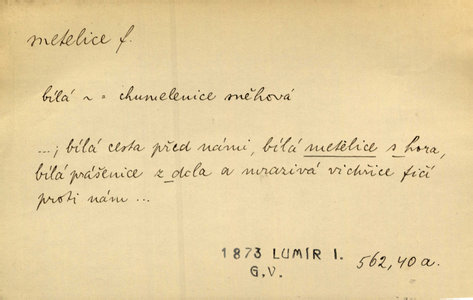 metelice f.
bílá ~ = chumelenice sněhová
...; bílá cesta před námi, bílá metelice s hora,
bílá prášenice z dola a mrazivá vichřice fičí
proti nám ...
1873 LUMÍR I. 562,40a.
G.V.